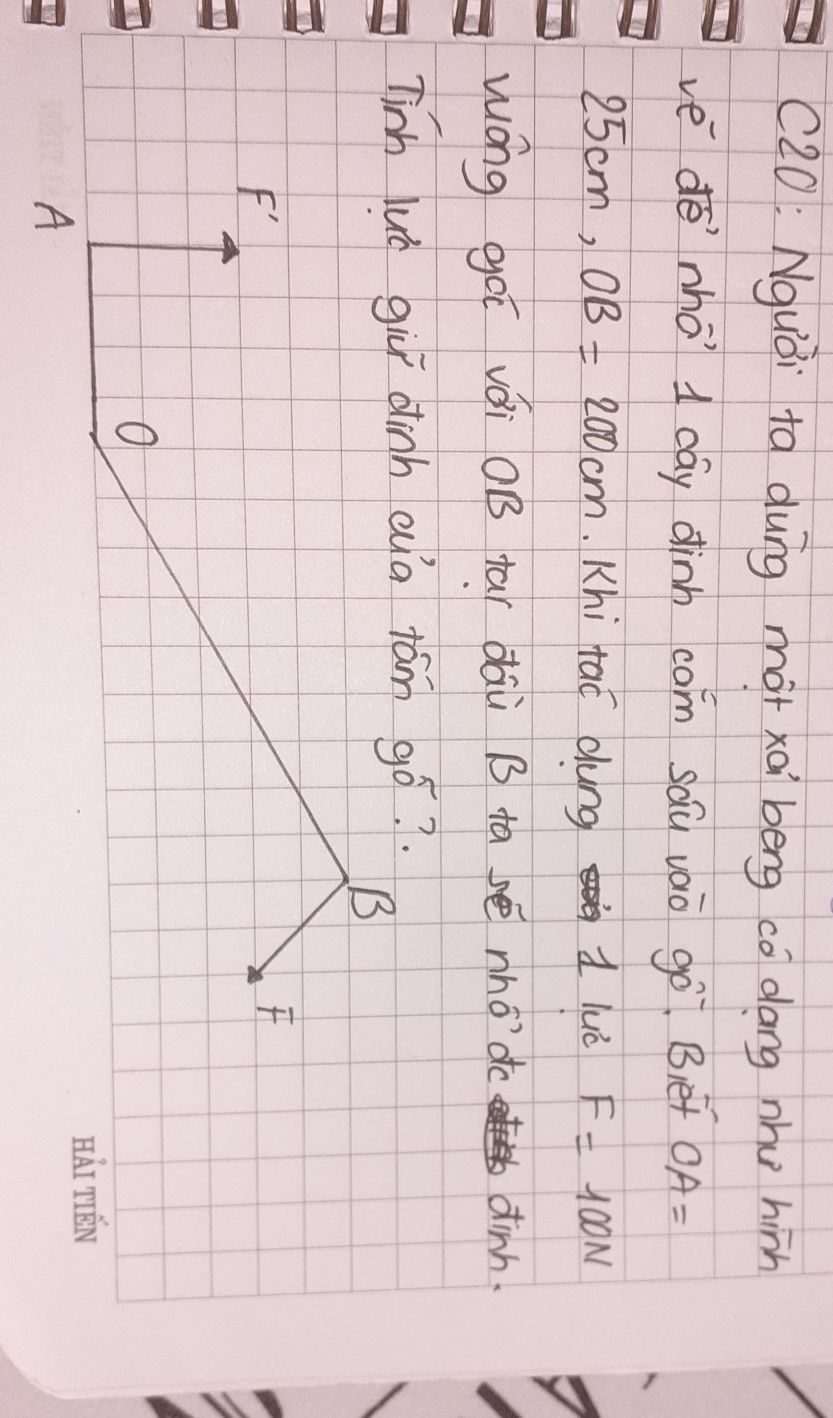 C20: Người ta dùng một xà beng có dạng như hình
vẽ để nhổ 1 cây đinh cắm sâu vào gỗ. Biết OA =
25cm, OB = 200cm. Khi tác dụng 1 lực F = 100N
vuông góc với OB tại đầu B ta sẽ nhổ đc đinh.
Tính lực giữ đinh của tấm gỗ?.
F'
B
F
O
A
HẢI TIẾN